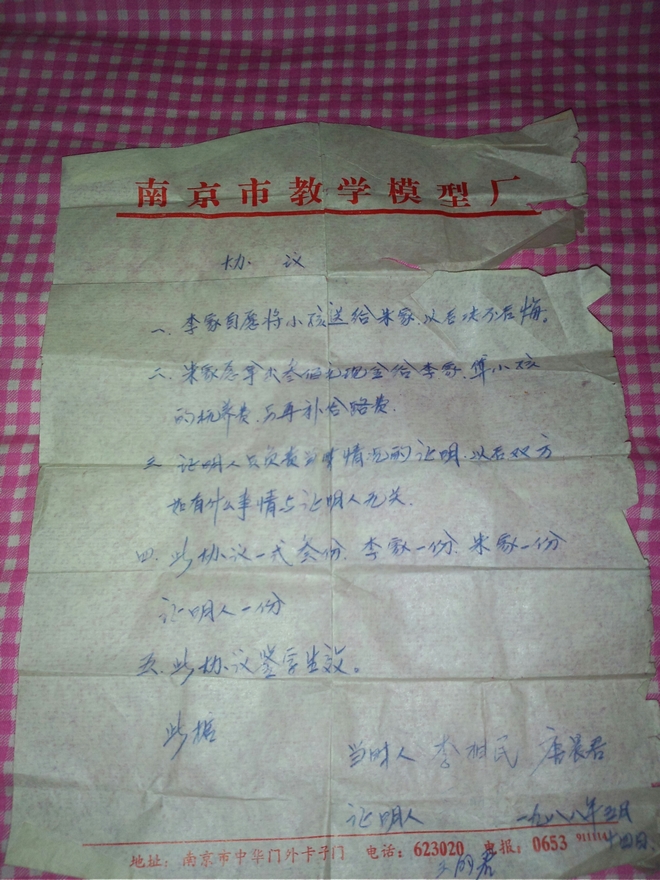 南京市教学模型厂
协 议
一、李家自愿将小孩送给朱家,以后决不后悔。
二、朱家愿拿出叁佰元现金给李家,算小孩
的抚养费,另再补给路费.
三、证明人只负责当时情况的证明,以后双方
如有什么事情与证明人无关.
四、此协议一式叁份,李家一份,朱家一份
证明人一份
五、此协议签字生效。
此据
当时人 李相民 唐晨君
证明人 一九八八年五月
十四日
地址:南京市中华门外卡子门 电话:623020 电报:0653